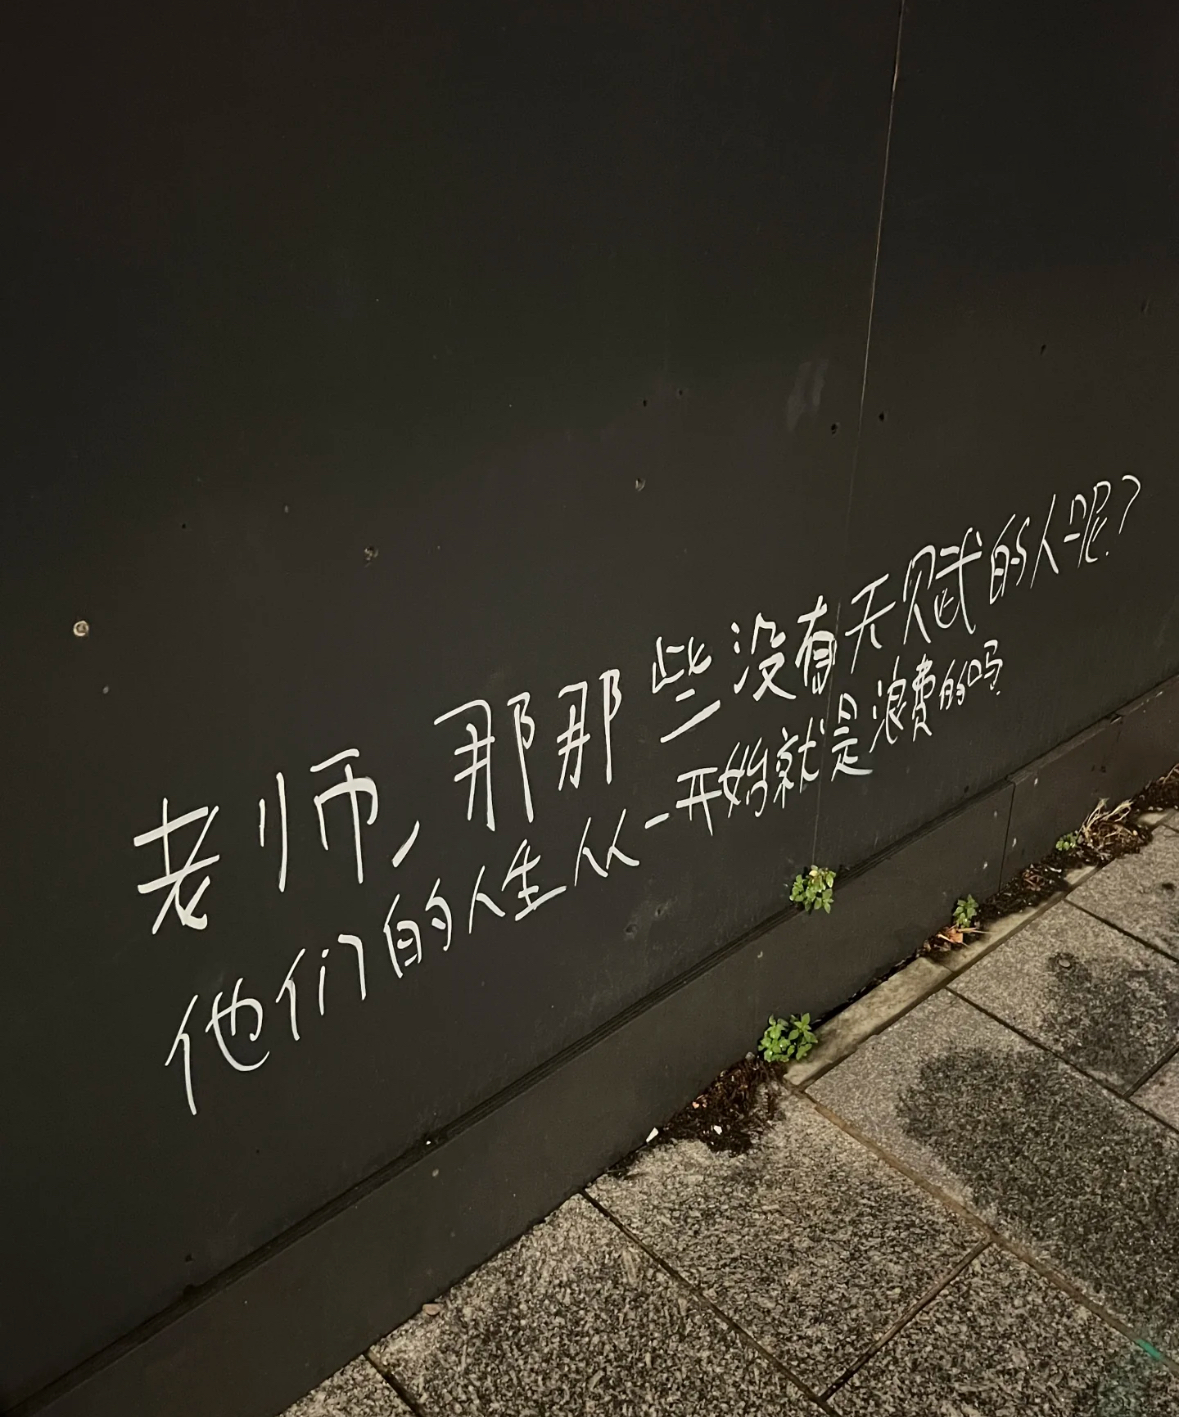 老师，那那些没有天赋的人呢？
他们的人生从一开始就是浪费的吗